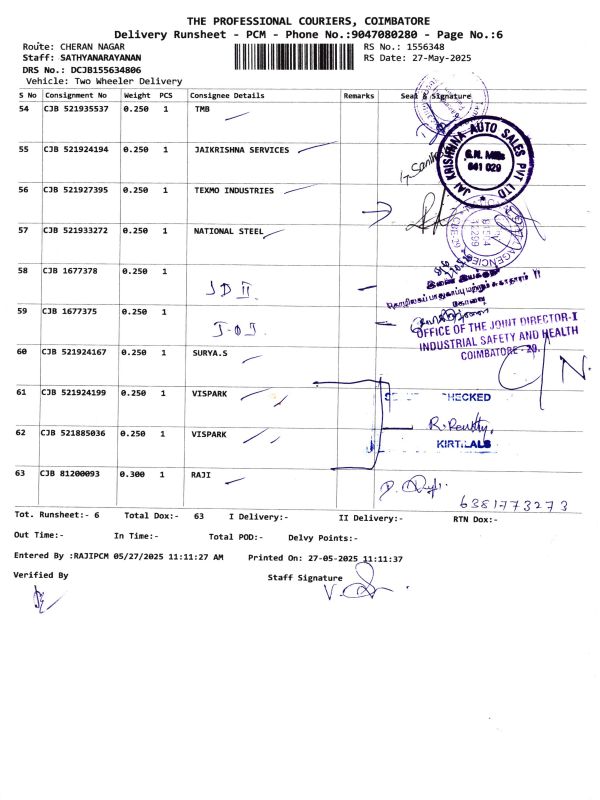 THE PROFESSIONAL COURIERS, COIMBATORE
Delivery Runsheet - PCM - Phone No.:9047080280 - Page No.:6
Route: CHERAN NAGAR
RS No.: 1556348
Staff: SATHYANARAYANAN
RS Date: 27-May-2025
DRS No.: DCJB155634806
Vehicle: Two Wheeler Delivery
S No Consignment No Weight PCS Consignee Details Remarks Seal & Signature
54 CJB 521935537 0.250 1 TMB
55 CJB 521924194 0.250 1 JAIKRISHNA SERVICES
JAI KRISHNA AUTO SALES PVT LTD
G.N. Mills
641 029
56 CJB 521927395 0.250 1 TEXMO INDUSTRIES
57 CJB 521933272 0.250 1 NATIONAL STEEL
58 CJB 1677378 0.250 1
JD II
59 CJB 1677375 0.250 1
OFFICE OF THE JOINT DIRECTOR-I
INDUSTRIAL SAFETY AND HEALTH
COIMBATORE - 29.
60 CJB 521924167 0.250 1 SURYA.S
61 CJB 521924199 0.250 1 VISPARK
CHECKED
62 CJB 521885036 0.250 1 VISPARK
KIRTILALS
63 CJB 81200093 0.300 1 RAJI
6381773273
Tot. Runsheet:- 6 Total Dox:- 63 I Delivery:- II Delivery:- RTN Dox:-
Out Time:- In Time:- Total POD:- Delvy Points:-
Entered By :RAJIPCM 05/27/2025 11:11:27 AM Printed On: 27-05-2025 11:11:37
Verified By
Staff Signature